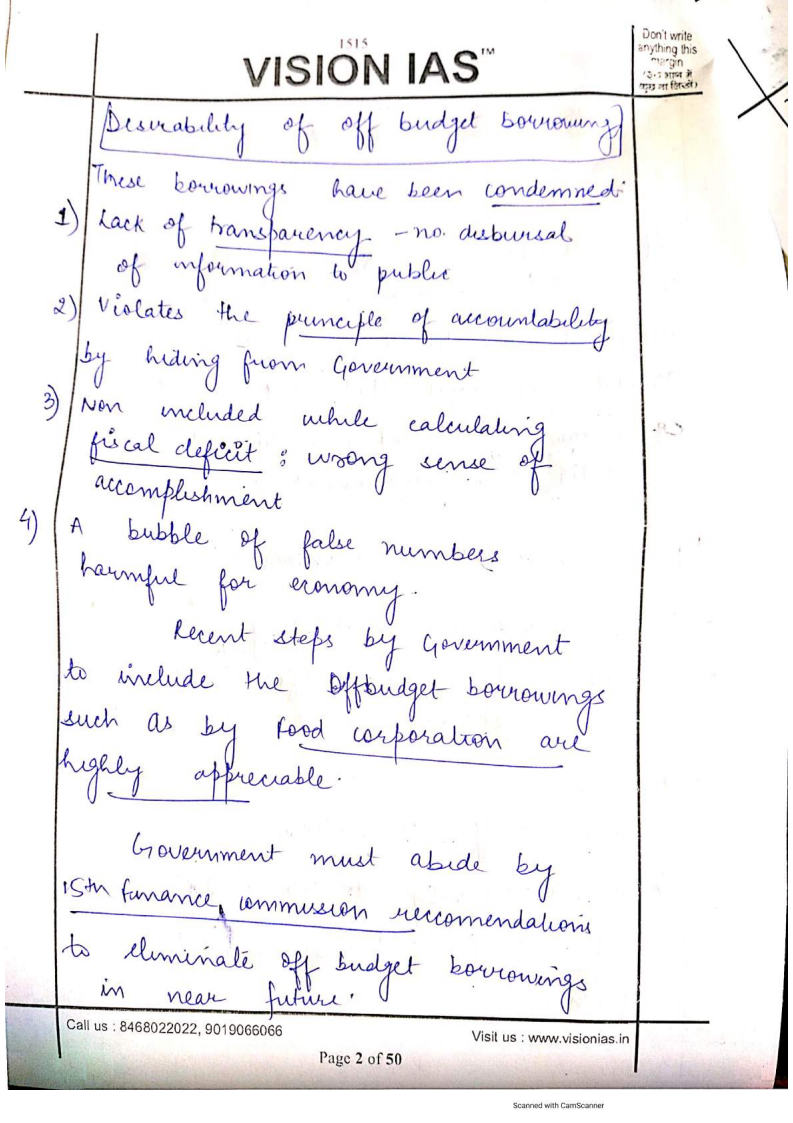 1515
VISION IAS™
Don't write
anything this
margin
Desirability of off budget borrowing
These borrowings have been condemned.
1) Lack of transparency - no. disbursal
of information to public
2) Violates the principle of accountability
by hiding from Government
3) Non included while calculating
fiscal deficit : wrong sense of
accomplishment
4) A bubble of false numbers
harmful for economy.
Recent steps by Government
to include the Offbudget borrowings
such as by Food corporation are
highly appreciable.
Government must abide by
15th finance commission reccomendations
to eliminate off budget borrowings
in near future.
Call us : 8468022022, 9019066066
Visit us : www.visionias.in
Page 2 of 50
Scanned with CamScanner